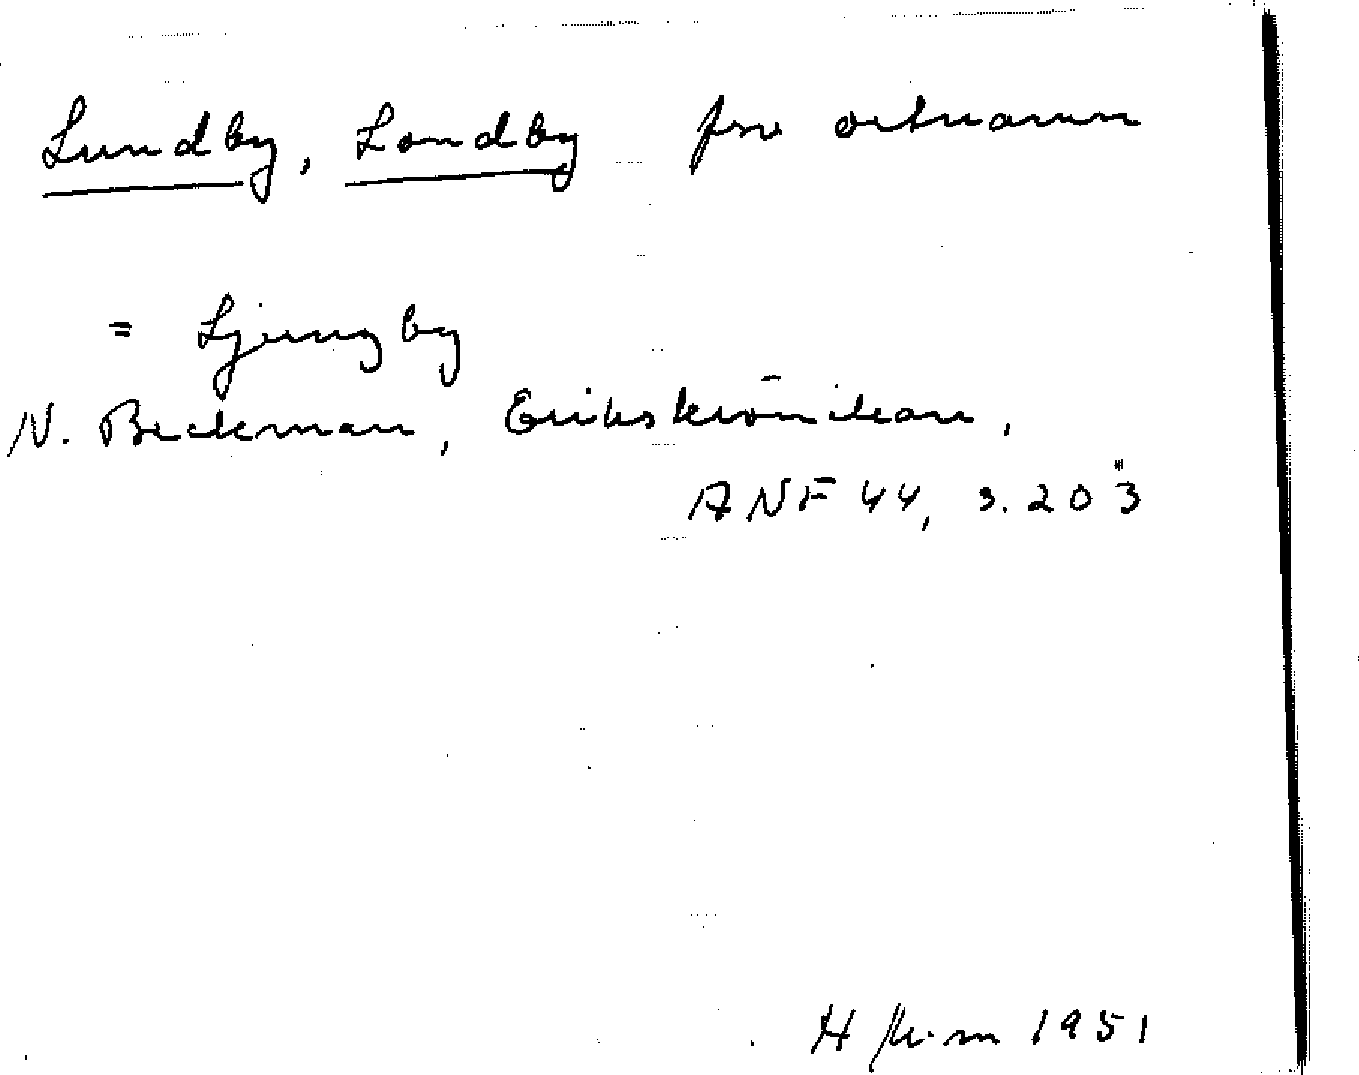 Lundby, Londby fsv ortnamn
= Ljungby
N. Beckman, Erikskrönikan,
ANF 44, s. 203
H 1951